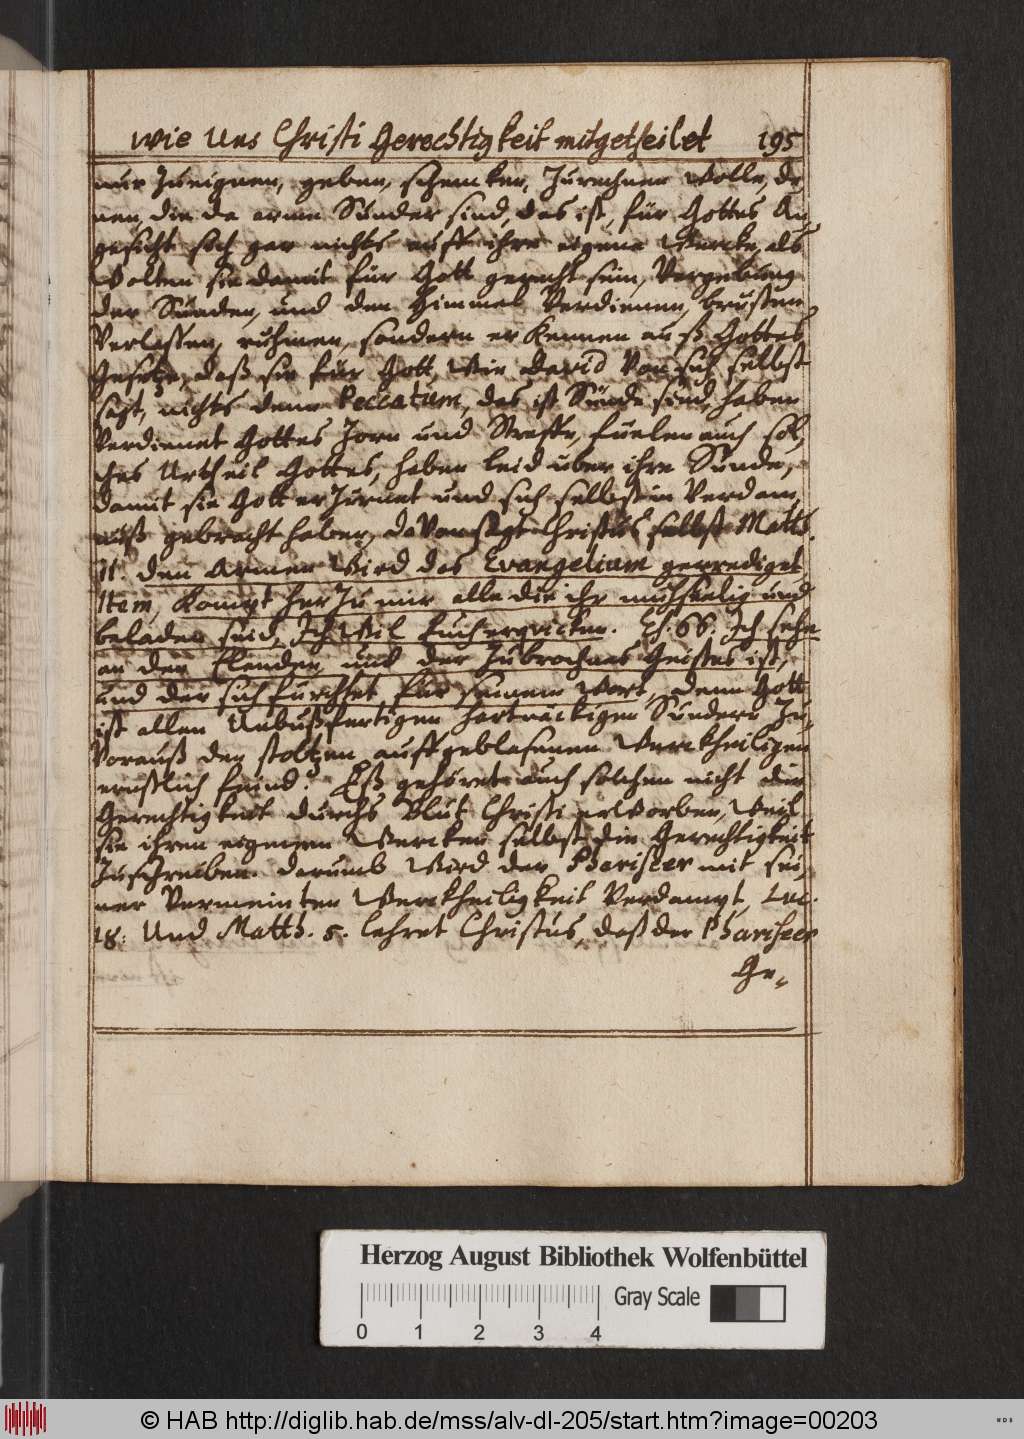 Wie Uns Christi Gerechtigkeit mitgetheilet 195
nur zueignen, geben, schencken, zurechnen wolle, de,
nen, die da arme Sünder sind, das ist, für Gottes An,
gesicht sich gar nichts auff ihre eigene Wercke, als
wolten sie damit für Gott gerecht sein, Vergebung
der Sünden, und den Himmel Verdienen, brüsten
Verlassen, rühmen, sondern erkennen auß Gottes
Gesetze, daß sie für Gott, wie David Von sich selbst
sagt, nichts denn Peccatum, das ist Sünde sind, haben
Verdienet Gottes Zorn und Straffe, fuelen auch sol,
ches Urtheil Gottes, haben leid uber ihre Sünde,
damit sie Gott erzürnet und sich selbst in Verdam,
nuß gebracht haben, daVon sagt Christus selbst Matth.
11. den Armen Wird das Evangelium geprediget
Item, Kompt her zu mir alle die ihr muhselig und
beladen seid, Ich Wil Euch erqvicken. Es. 66. Ich sehe
an den Elenden, und der zubrochnes Geistes ist,
und der sich fürchtet für meinem Wort, denn Gott
ist allen Unbußfertigen hartnäckigen Sündern Zu,
Vorauß den stoltzen auffgeblasenen Werckheiligen
ernstlich feind. Eß gehöret auch solchen nicht die
Gerechtigkeit durchs Blut Christi erWorben, Weil
sie ihren eigenen Wercken selbst die Gerechtigkeit
Zuschreiben. darumb Wird der Phariseer mit sei,
ner Vermeinten Werckheiligkeit Verdampt, Luc.
18. Und Matth. 5. lehret Christus, daß der Phariseer
Ge,
Herzog August Bibliothek Wolfenbüttel
Gray Scale
0 1 2 3 4
© HAB http://diglib.hab.de/mss/alv-dl-205/start.htm?image=00203